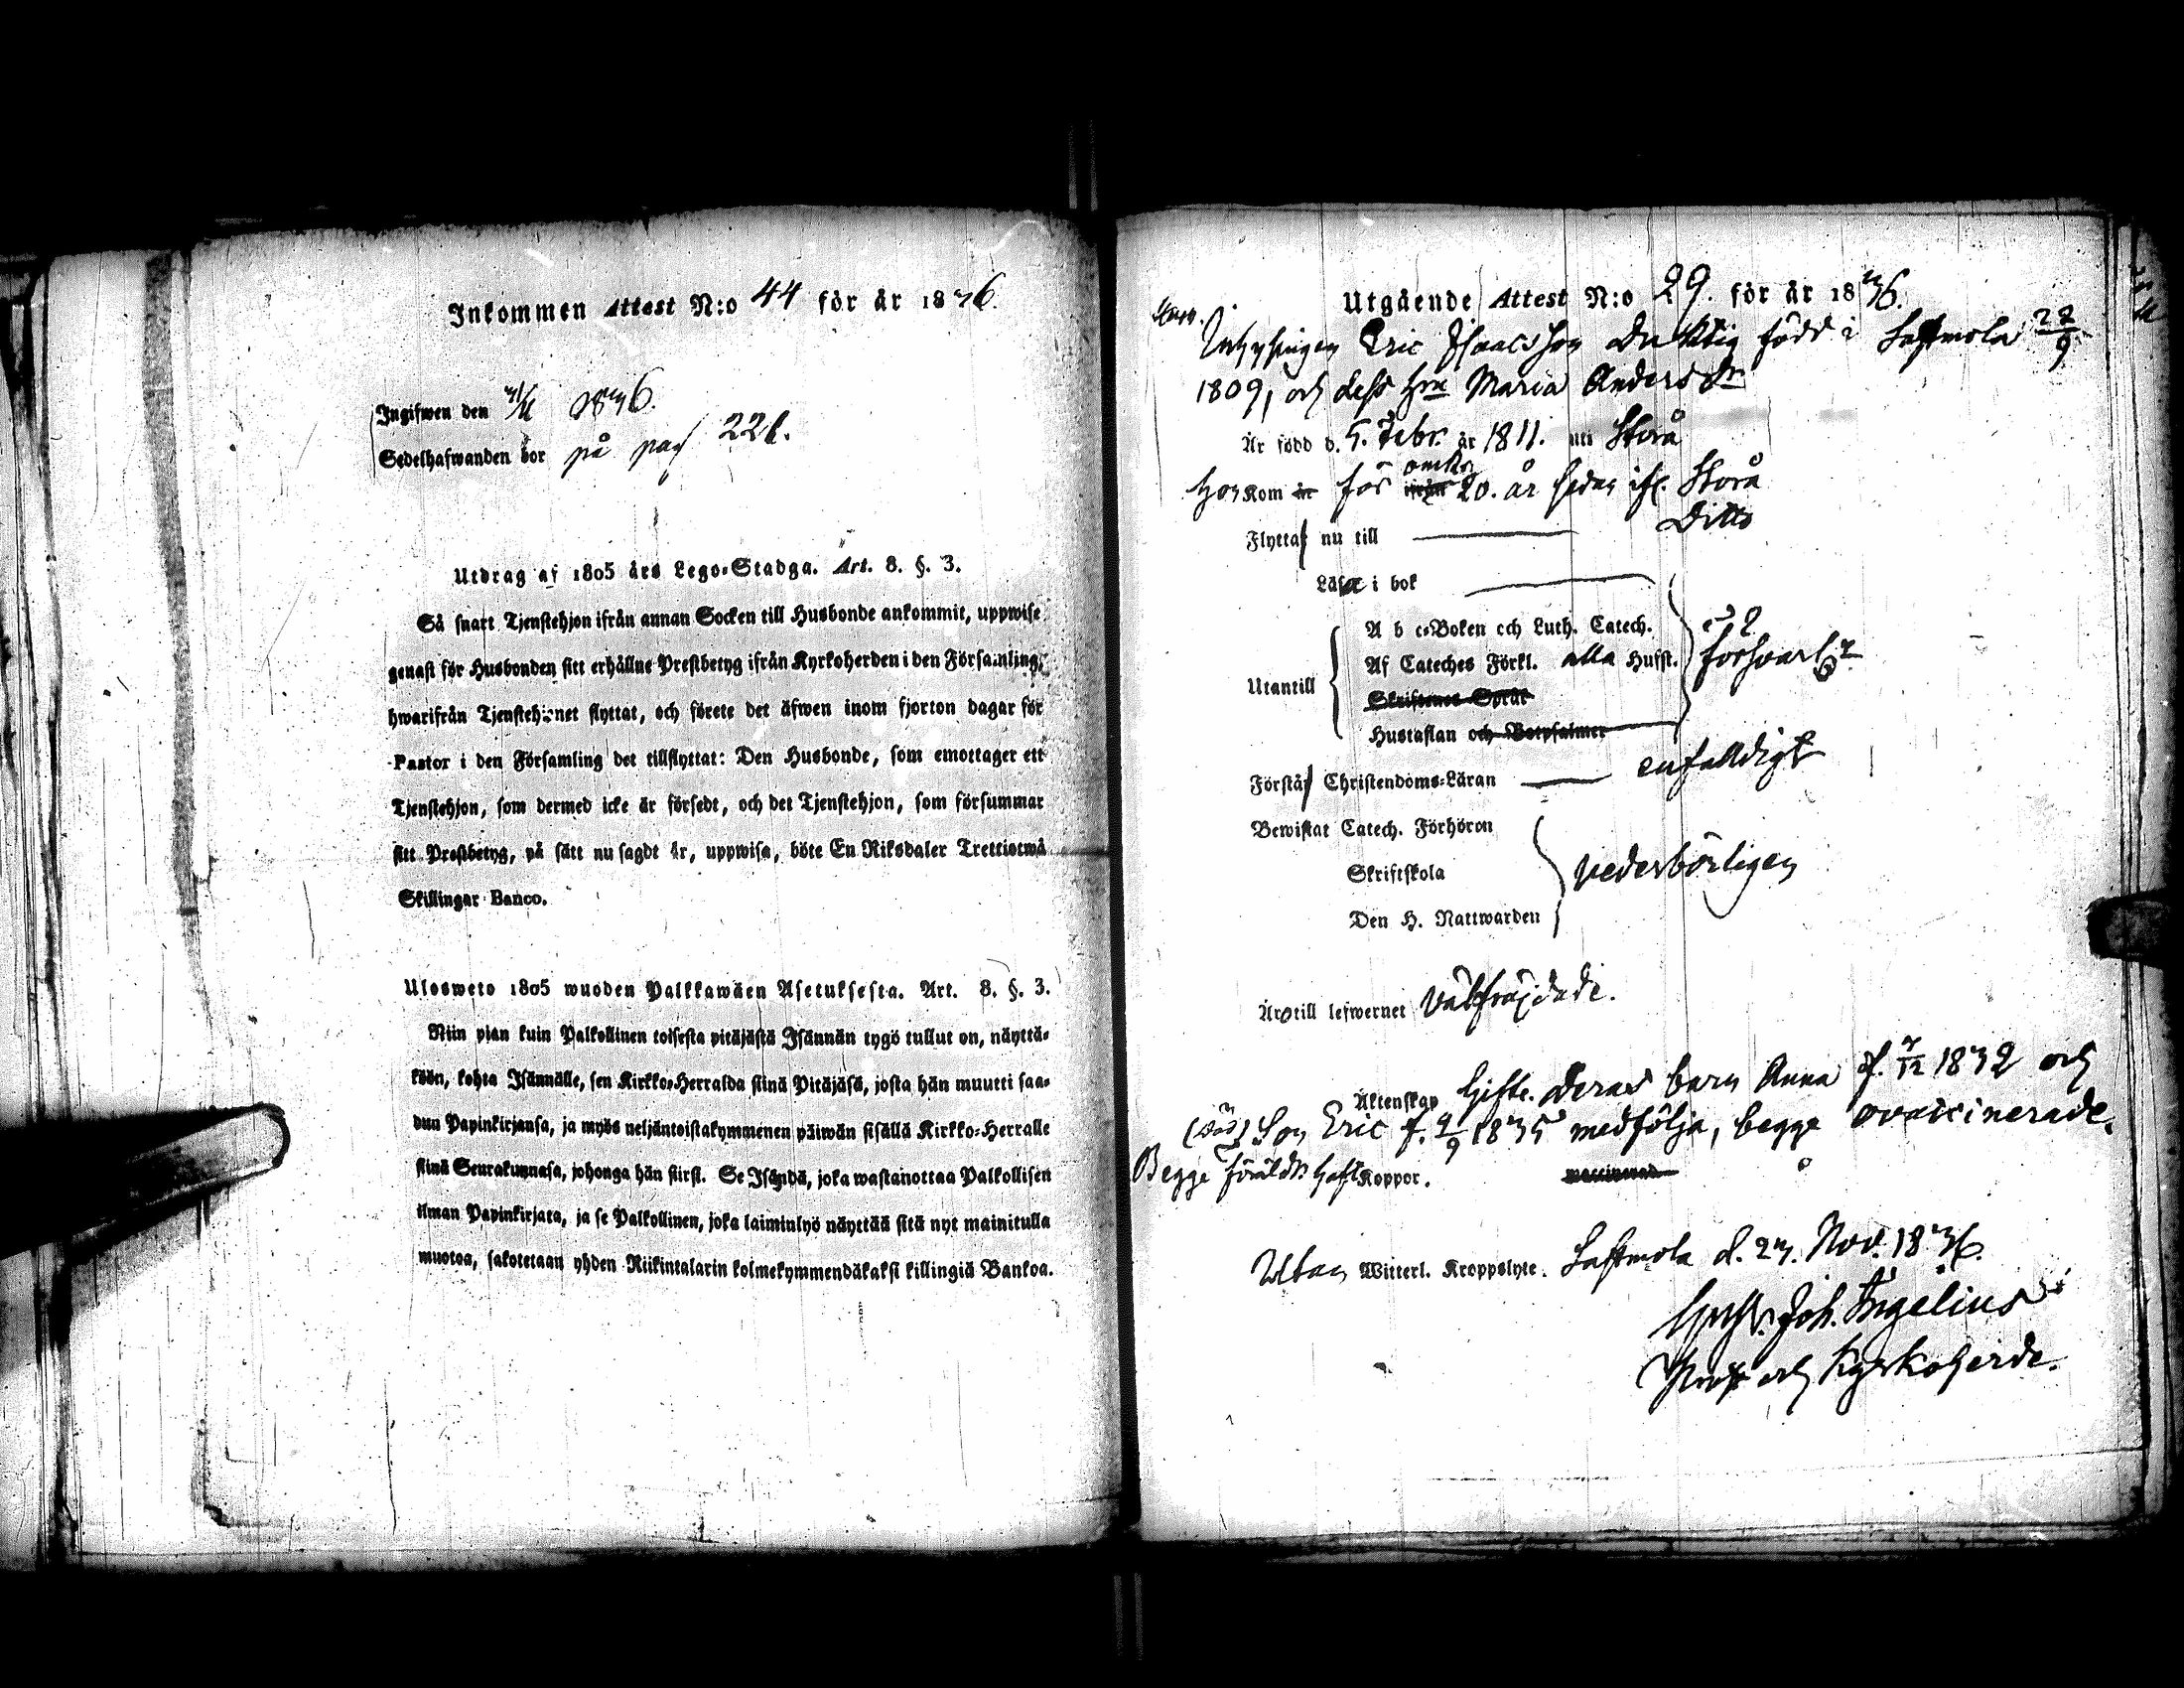 Inkommen Attest N:o 44 för år 1836.
Ingifwen den 1836.
Sedelhafwanden bor på pag 221.
Utdrag af 1805 års Lego-Stadga. Art. 8. §. 3.
Så snart Tjenstehjon ifrån annan Socken till Husbonde ankommit, uppwise
genast för Husbonden sitt erhållne Prestbetyg ifrån Kyrkoherden i den Församling,
hwarifrån Tjenstehjonet flyttat, och förete det äfwen inom fjorton dagar för
Pastor i den Församling det tillflyttat: Den Husbonde, som emottager ett
Tjenstehjon, som dermed icke är försedt, och det Tjenstehjon, som försummar
sitt Prestbetyg, på sätt nu sagdt är, uppwisa, böte En Riksdaler Trettiotwå
Skillingar Banco.
Ulosweto 1805 wuoden Palkkawäen Asetuksesta. Art. 8. §. 3.
Niin pian kuin Palkollinen toisesta pitäjästä Isännän tygö tullut on, näyttä-
köön, kohta Isännälle, sen Kirkko-Herralda siinä Pitäjäsä, josta hän muutti saa-
dun Papinkirjansa, ja myös neljäntoistakymmenen päiwän sisällä Kirkko-Herralle
siinä Seurakunnasa, johonga hän siirst. Se Isändä, joka wastanottaa Palkollisen
ilman Papinkirjata, ja se Palkollinen, joka laiminlyö näyttää sitä nyt mainitulla
muotoa, sakotetaan yhden Riikintalarin kolmekymmendäkaksi killingiä Bankoa.
Utgående Attest N:o 29. för år 1836.
Inhysingen Eric Isaacsson född i Lappmola 22/9
1809, och dess Hru Maria Andersdr
Är född d. 5. Febr. år 1811. uti Storå
Hon kom för omkr 20. år sedan ifr. Storå
Flytta nu till Ditto
Läsa i bok
A b c-Boken och Luth. Catech.
Af Cateches Förkl. alla Husst. försvarl:t
Utantill
Skriftenes Språk
Hustaflan och Botpsalmer
Förstå Christendoms-Läran enfalldigt
Bewistat Catech. Förhören
Skriftskola vederbörligen
Den H. Nattwarden
Äro till lefwernet välfräjdade.
Äktenskap Gifte. Deras barn Anna f. 7/12 1832 och
(död) Son Eric f. 9/9 1835 medfölja, begge ovaccinerade.
Begge föräldr. haft Koppor. vaccinerad
Utan Witterl. Kroppslyte. Lappmola d. 23. Nov. 1836.
Joh. Ångelius
Prost och Kyrkoherde.